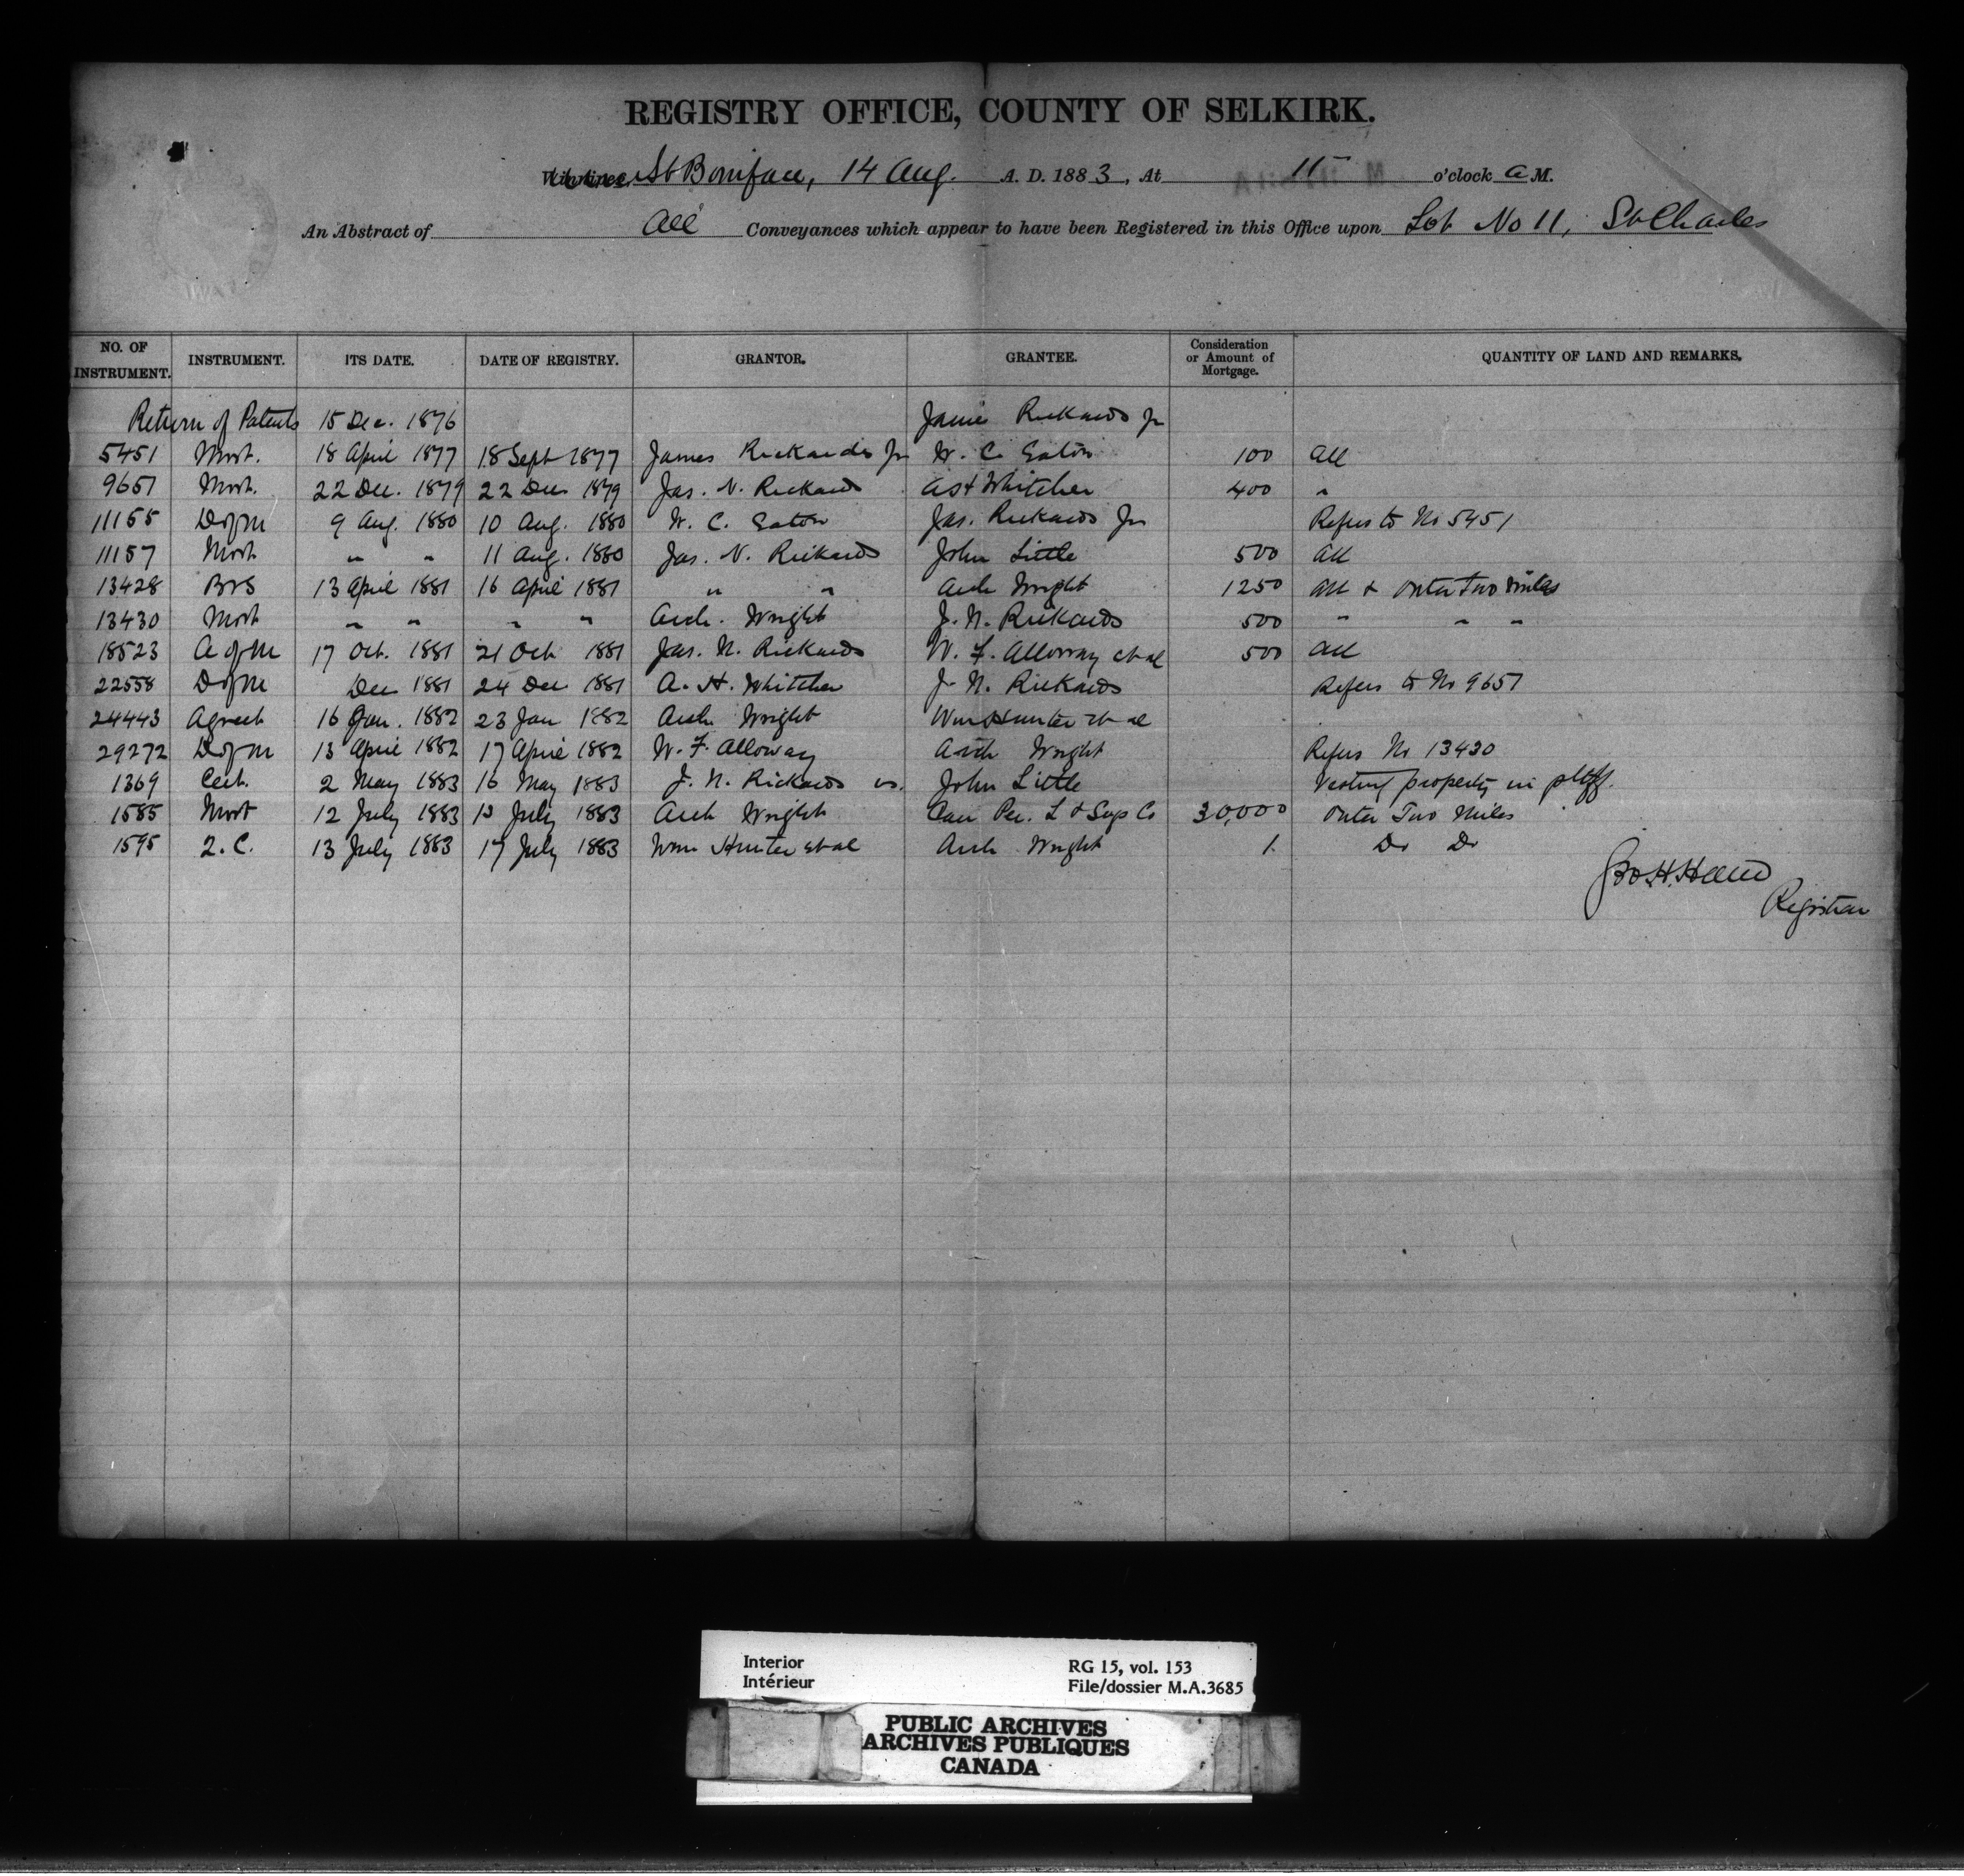 REGISTRY OFFICE, COUNTY OF SELKIRK.
St Boniface, 14 Aug. A. D. 1883, At 11 o'clock a M.
An Abstract of All Conveyances which appear to have been Registered in this Office upon Lot No 11, St Charles
NO. OF INSTRUMENT. INSTRUMENT. ITS DATE. DATE OF REGISTRY. GRANTOR. GRANTEE. Consideration or Amount of Mortgage. QUANTITY OF LAND AND REMARKS.
Return of Patents 15 Dec. 1876 James Rickards Jr
5451 Mort. 18 April 1877 18 Sept 1877 James Rickards Jr W. C. Eaton 100 All
9651 Mort. 22 Dec. 1879 22 Dec 1879 Jas. N. Rickards Whitcher 400 "
11155 D of M 9 Aug. 1880 10 Aug. 1880 W. C. Eaton Jas. Rickards Jr Refers to No 5451
11157 Mort " " 11 Aug. 1880 Jas. N. Rickards John Little 500 All
13428 B & S 13 April 1881 16 April 1881 " " Arch Wright 1250 All & Outer Two Miles
13430 Mort " " " " Arch. Wright J. N. Rickards 500 " " "
18523 A of M 17 Oct. 1881 21 Oct 1881 Jas. N. Rickards W. F. Alloway et al 500 All
22558 D of M Dec 1881 24 Dec 1881 A. H. Whitcher J. N. Rickards Refers to No 9651
24443 Agreet 16 Jan. 1882 23 Jan 1882 Arch Wright Wm Hunter et al
29272 D of M 13 April 1882 17 April 1882 W. F. Alloway Arch Wright Refers No 13430
1369 Cert. 2 May 1883 16 May 1883 J. N. Rickards vs. John Little Vesting property in pltff.
1585 Mort 12 July 1883 13 July 1883 Arch Wright Can Per. L & Svgs Co 30,000 Outer Two Miles
1595 Q. C. 13 July 1883 17 July 1883 Wm Hunter et al Arch Wright 1. Do Do
Registrar
Interior RG 15, vol. 153
Intérieur File/dossier M.A.3685
PUBLIC ARCHIVES
ARCHIVES PUBLIQUES
CANADA